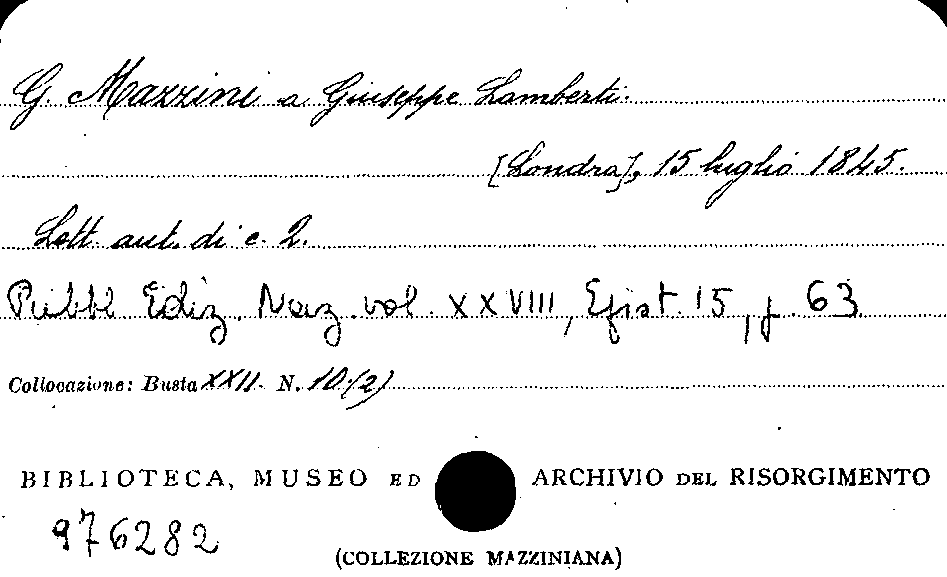 G. Mazzini a Giuseppe Lamberti.
[Londra], 15 luglio 1845.
Lett. aut. di c. 2.
Pubbl Ediz. Naz. vol. XXVIII, Epist. 15, p. 63
Collocazione: Busta XXII. N. 10.(2)
BIBLIOTECA, MUSEO ED ARCHIVIO DEL RISORGIMENTO
976282
(COLLEZIONE MAZZINIANA)